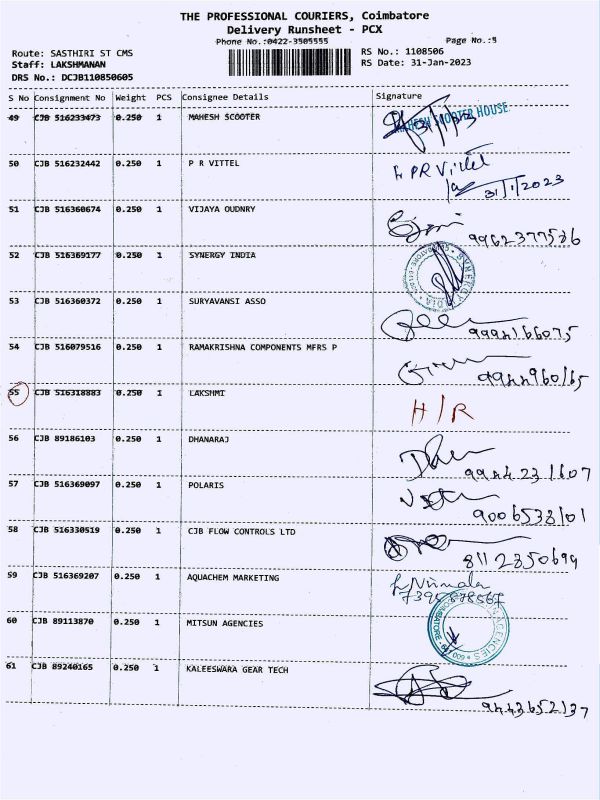 THE PROFESSIONAL COURIERS, Coimbatore
Delivery Runsheet - PCX
Phone No.:0422-3505555 Page No.:5
Route: SASTHIRI ST CMS RS No.: 1108506
Staff: LAKSHMANAN RS Date: 31-Jan-2023
DRS No.: DCJB110850605
S No Consignment No Weight PCS Consignee Details Signature
49 CJB 516233473 0.250 1 MAHESH SCOOTER MAHESH SCOOTER HOUSE
50 CJB 516232442 0.250 1 P R VITTEL PR Vittel
31/1/2023
51 CJB 516360674 0.250 1 VIJAYA OUDNRY
9962377586
52 CJB 516369177 0.250 1 SYNERGY INDIA
53 CJB 516360372 0.250 1 SURYAVANSI ASSO
9994166075
54 CJB 516079516 0.250 1 RAMAKRISHNA COMPONENTS MFRS P
9944960165
55 CJB 516318883 0.250 1 LAKSHMI H/R
56 CJB 89186103 0.250 1 DHANARAJ
9944231607
57 CJB 516369097 0.250 1 POLARIS
9006538101
58 CJB 516330519 0.250 1 CJB FLOW CONTROLS LTD
8112350699
59 CJB 516369207 0.250 1 AQUACHEM MARKETING Nirmala
60 CJB 89113870 0.250 1 MITSUN AGENCIES
61 CJB 89240165 0.250 1 KALEESWARA GEAR TECH
9443652137